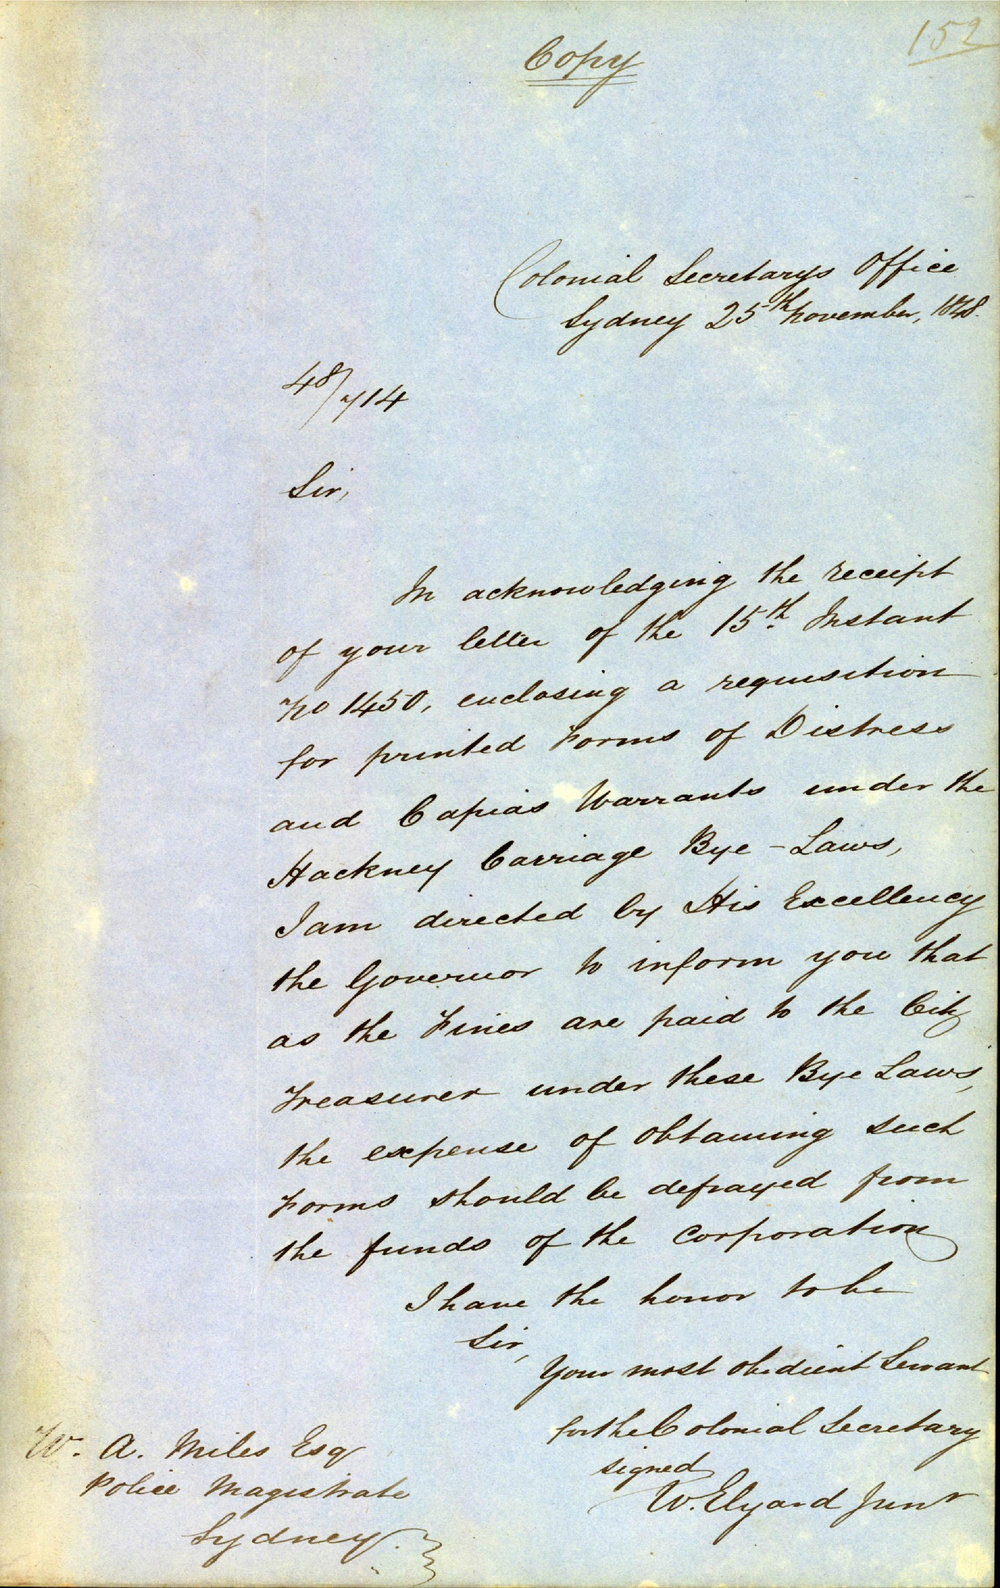 152
Copy
Colonial Secretarys Office
Sydney 25th November, 1848.
48/714
Sir,
In acknowledging the receipt
of your letter of the 15th Instant
No 1450, enclosing a requisition
for printed Forms of Distress
and Capias Warrants under the
Hackney Carriage Bye-Laws,
I am directed by His Excellency
the Governor to inform you that
as the Fines are paid to the City
Treasurer under these Bye Laws,
the expense of obtaining such
Forms should be defrayed from
the funds of the Corporation
I have the honor to be
Sir,
Your most obedient Servant
for the Colonial Secretary
signed
W. Elyard Junr
W. A. Miles Esq
Police Magistrate
Sydney.